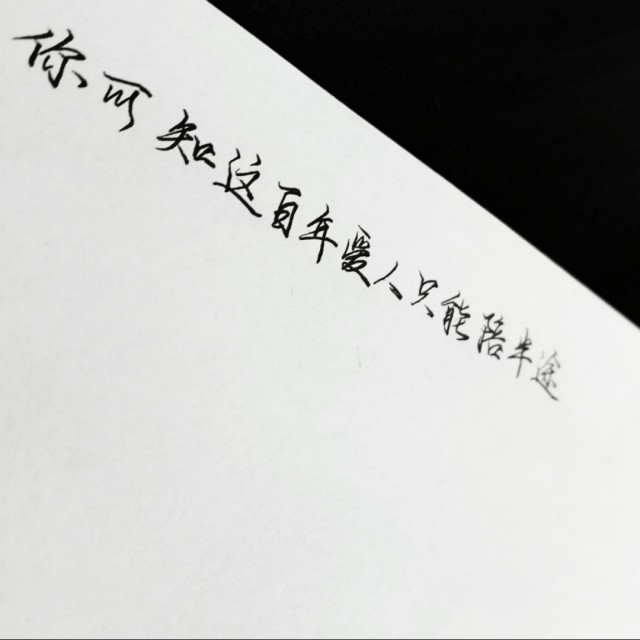 你可知这百年爱人只能陪半途